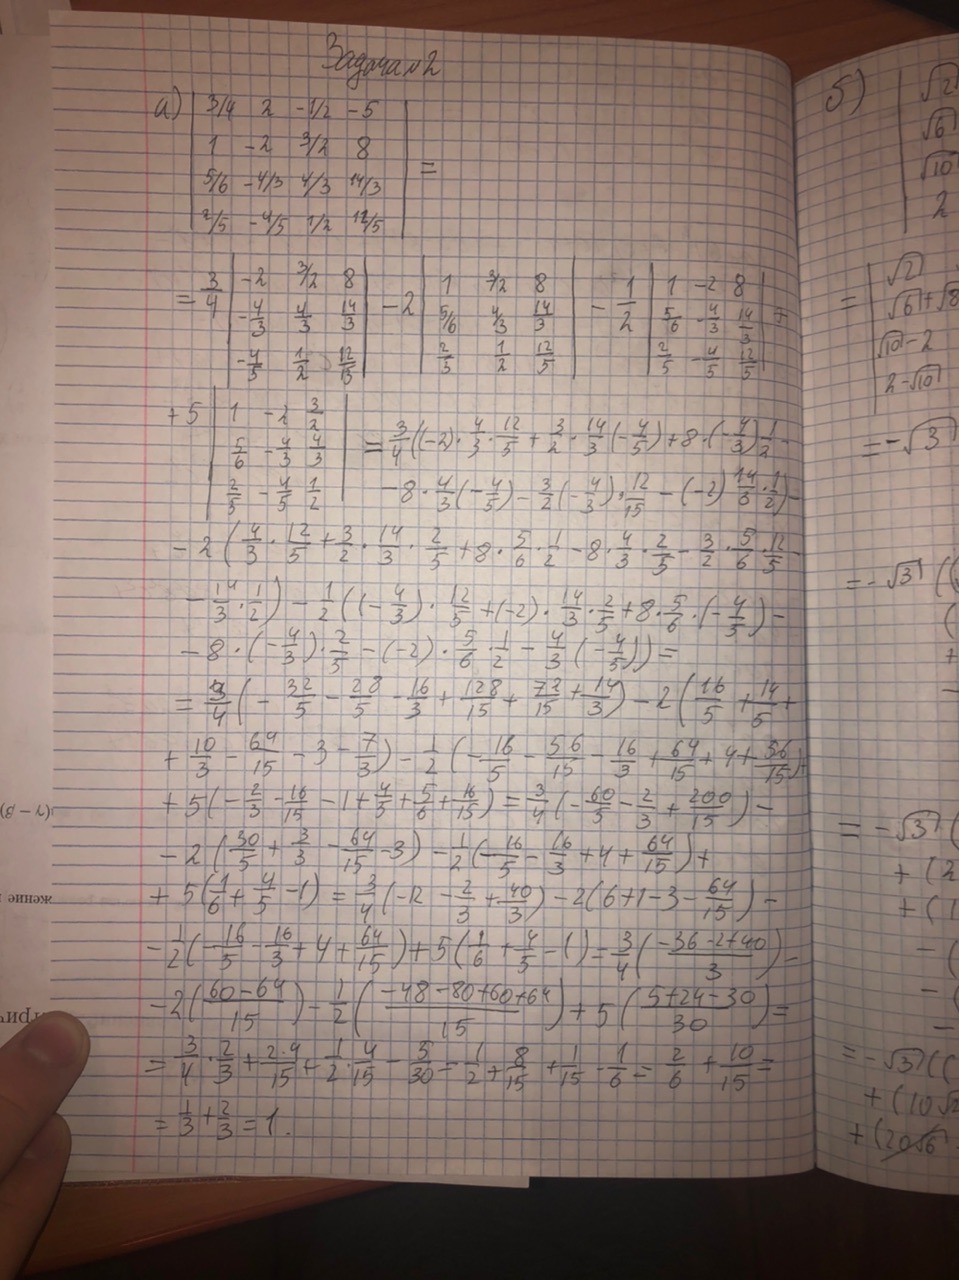 Задача №2
а) | 3/4 2 -1/2 -5 |
| 1 -2 3/2 8 | =
| 5/6 -4/3 4/3 14/3 |
| 2/5 -4/5 1/2 12/5 |
= 3/4 | -2 3/2 8 | - 2 | 1 3/2 8 | - 1/2 | 1 -2 8 | +
| -4/3 4/3 14/3 | | 5/6 4/3 14/3 | | 5/6 -4/3 14/3 |
| -4/5 1/2 12/15 | | 2/5 1/2 12/5 | | 2/5 -4/5 12/5 |
+ 5 | 1 -2 3/2 | = 3/4 ((-2) · 4/3 · 12/5 + 3/2 · 14/3 (-4/5) + 8 · (-4/3) 1/2 -
| 5/6 -4/3 4/3 |
| 2/5 -4/5 1/2 | - 8 · 4/3 (-4/5) - 3/2 (-4/3) · 12/15 - (-2) 14/3 · 1/2) -
- 2 (4/3 · 12/5 + 3/2 · 14/3 · 2/5 + 8 · 5/6 · 1/2 - 8 · 4/3 · 2/5 - 3/2 · 5/6 · 12/5 -
- 14/3 · 1/2) - 1/2 ((-4/3) · 12/5 + (-2) · 14/3 · 2/5 + 8 · 5/6 · (-4/5) -
- 8 · (-4/3) · 2/5 - (-2) · 5/6 · 1/2 - 4/3 (-4/5)) =
= 3/4 (- 32/5 - 28/5 - 16/3 + 128/15 + 72/15 + 14/3) - 2 (16/5 + 14/5 +
+ 10/3 - 64/15 - 3 - 7/3) - 1/2 (- 16/5 - 56/15 - 16/3 + 64/15 + 4 + 56/15) +
+ 5 (- 2/3 - 16/15 - 1 + 4/5 + 5/6 + 16/15) = 3/4 (- 60/5 - 2/3 + 200/15) -
- 2 (30/5 + 3/3 - 64/15 - 3) - 1/2 (- 16/5 - 16/3 + 4 + 64/15) +
+ 5 (1/6 + 4/5 - 1) = 3/4 (-12 - 2/3 + 40/3) - 2 (6 + 1 - 3 - 64/15) -
- 1/2 (- 16/5 - 16/3 + 4 + 64/15) + 5 (1/6 + 4/5 - 1) = 3/4 ((-36 - 2 + 40)/3) -
- 2 ((60 - 64)/15) - 1/2 ((-48 - 80 + 60 + 64)/15) + 5 ((5 + 24 - 30)/30) =
= 3/4 · 2/3 + 2·4/15 + 1/2 · 4/15 - 5/30 = 1/2 + 8/15 + 1/15 - 1/6 = 2/6 + 10/15 =
= 1/3 + 2/3 = 1.
б) | √2
| √6
| √10
| 2
= | √2
| √6 + √8
| √10 - 2
| 2 - √10
= - √3
= - √3 ((
= - √3 (
+ (2
+ (1
= - √3 ((
+ (10√2
+ (20√6
(γ - β)
жение